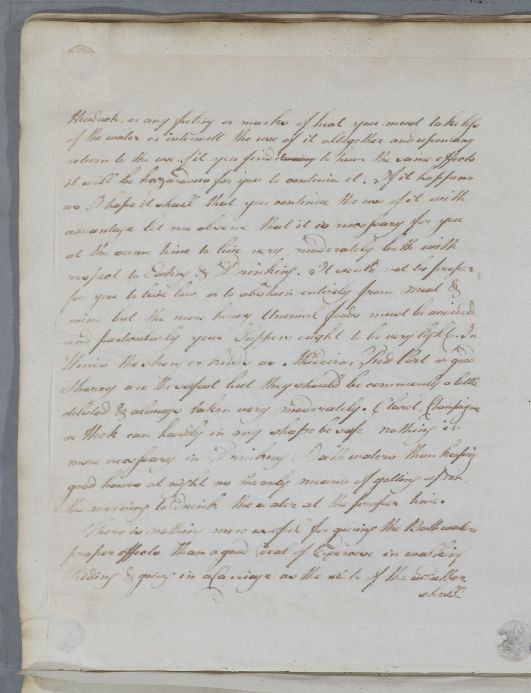 Headach or any feeling or marks of heat you must take less
of the water or intermitt the use of it altogether and upon any
return to the use of it you find to have the same effects
it will be hazardous for you to continue it. If it happens
as I hope it shall that you continue the use of it with
advantage let me observe that it is necessary for you
at the same time to live very moderately both with
respect to Eating & Drinking. It would not be proper
for you to live low or to abstain entirely from meat &
wine but the more heavy food must be avoided
and particularly your Suppers ought to be very light. In
Wines the strong er kinds as Madeira, Red Port or good
Sherry are the safest but they should be commonly a little
diluted & always taken very moderately. Claret, Champagne
or Hock can hardly in any shape be safe nothing is
more necessary in Drinking Bath waters than keeping
good hours at night as the only means of getting up in
the morning to Drink the water at the proper time.
There is nothing more usefull for giving the Bath waters
proper effects than a good deal of Exercise in walking
Riding & going in a Carriage as the state of the weather